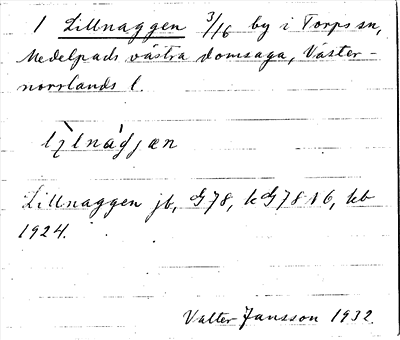 1 Lillnaggen 3/16 by i Torps sn,
Medelpads västra domsaga, Väster-
norrlands l.
Lillnaggen jb, G78, k G78 N6, kb
1924.
Valter Jansson 1932.